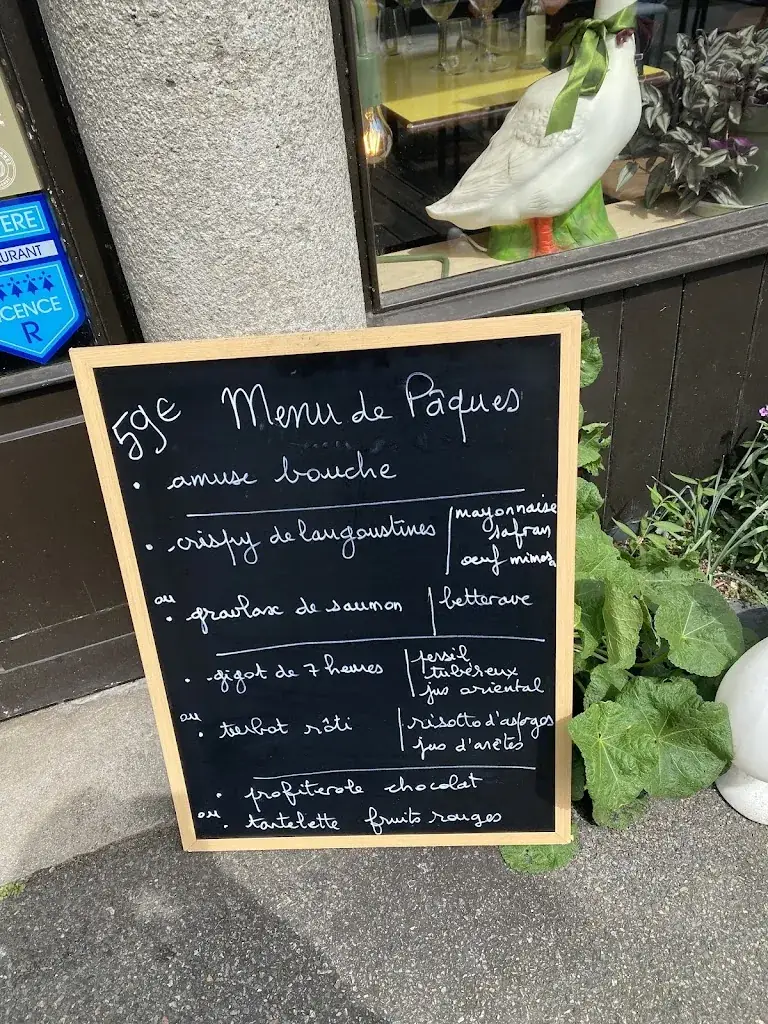 ERE
URANT
ICENCE
R
59€ Menu de Pâques
• amuse bouche
• crispy de langoustines | mayonnaise
safran
oeuf mimosa
ou
• gravlax de saumon | betterave
• gigot de 7 heures | persil
tubéreux
jus oriental
ou
• turbot rôti | risotto d'asperges
jus d'arêtes
• profiterole chocolat
ou
• tartelette fruits rouges